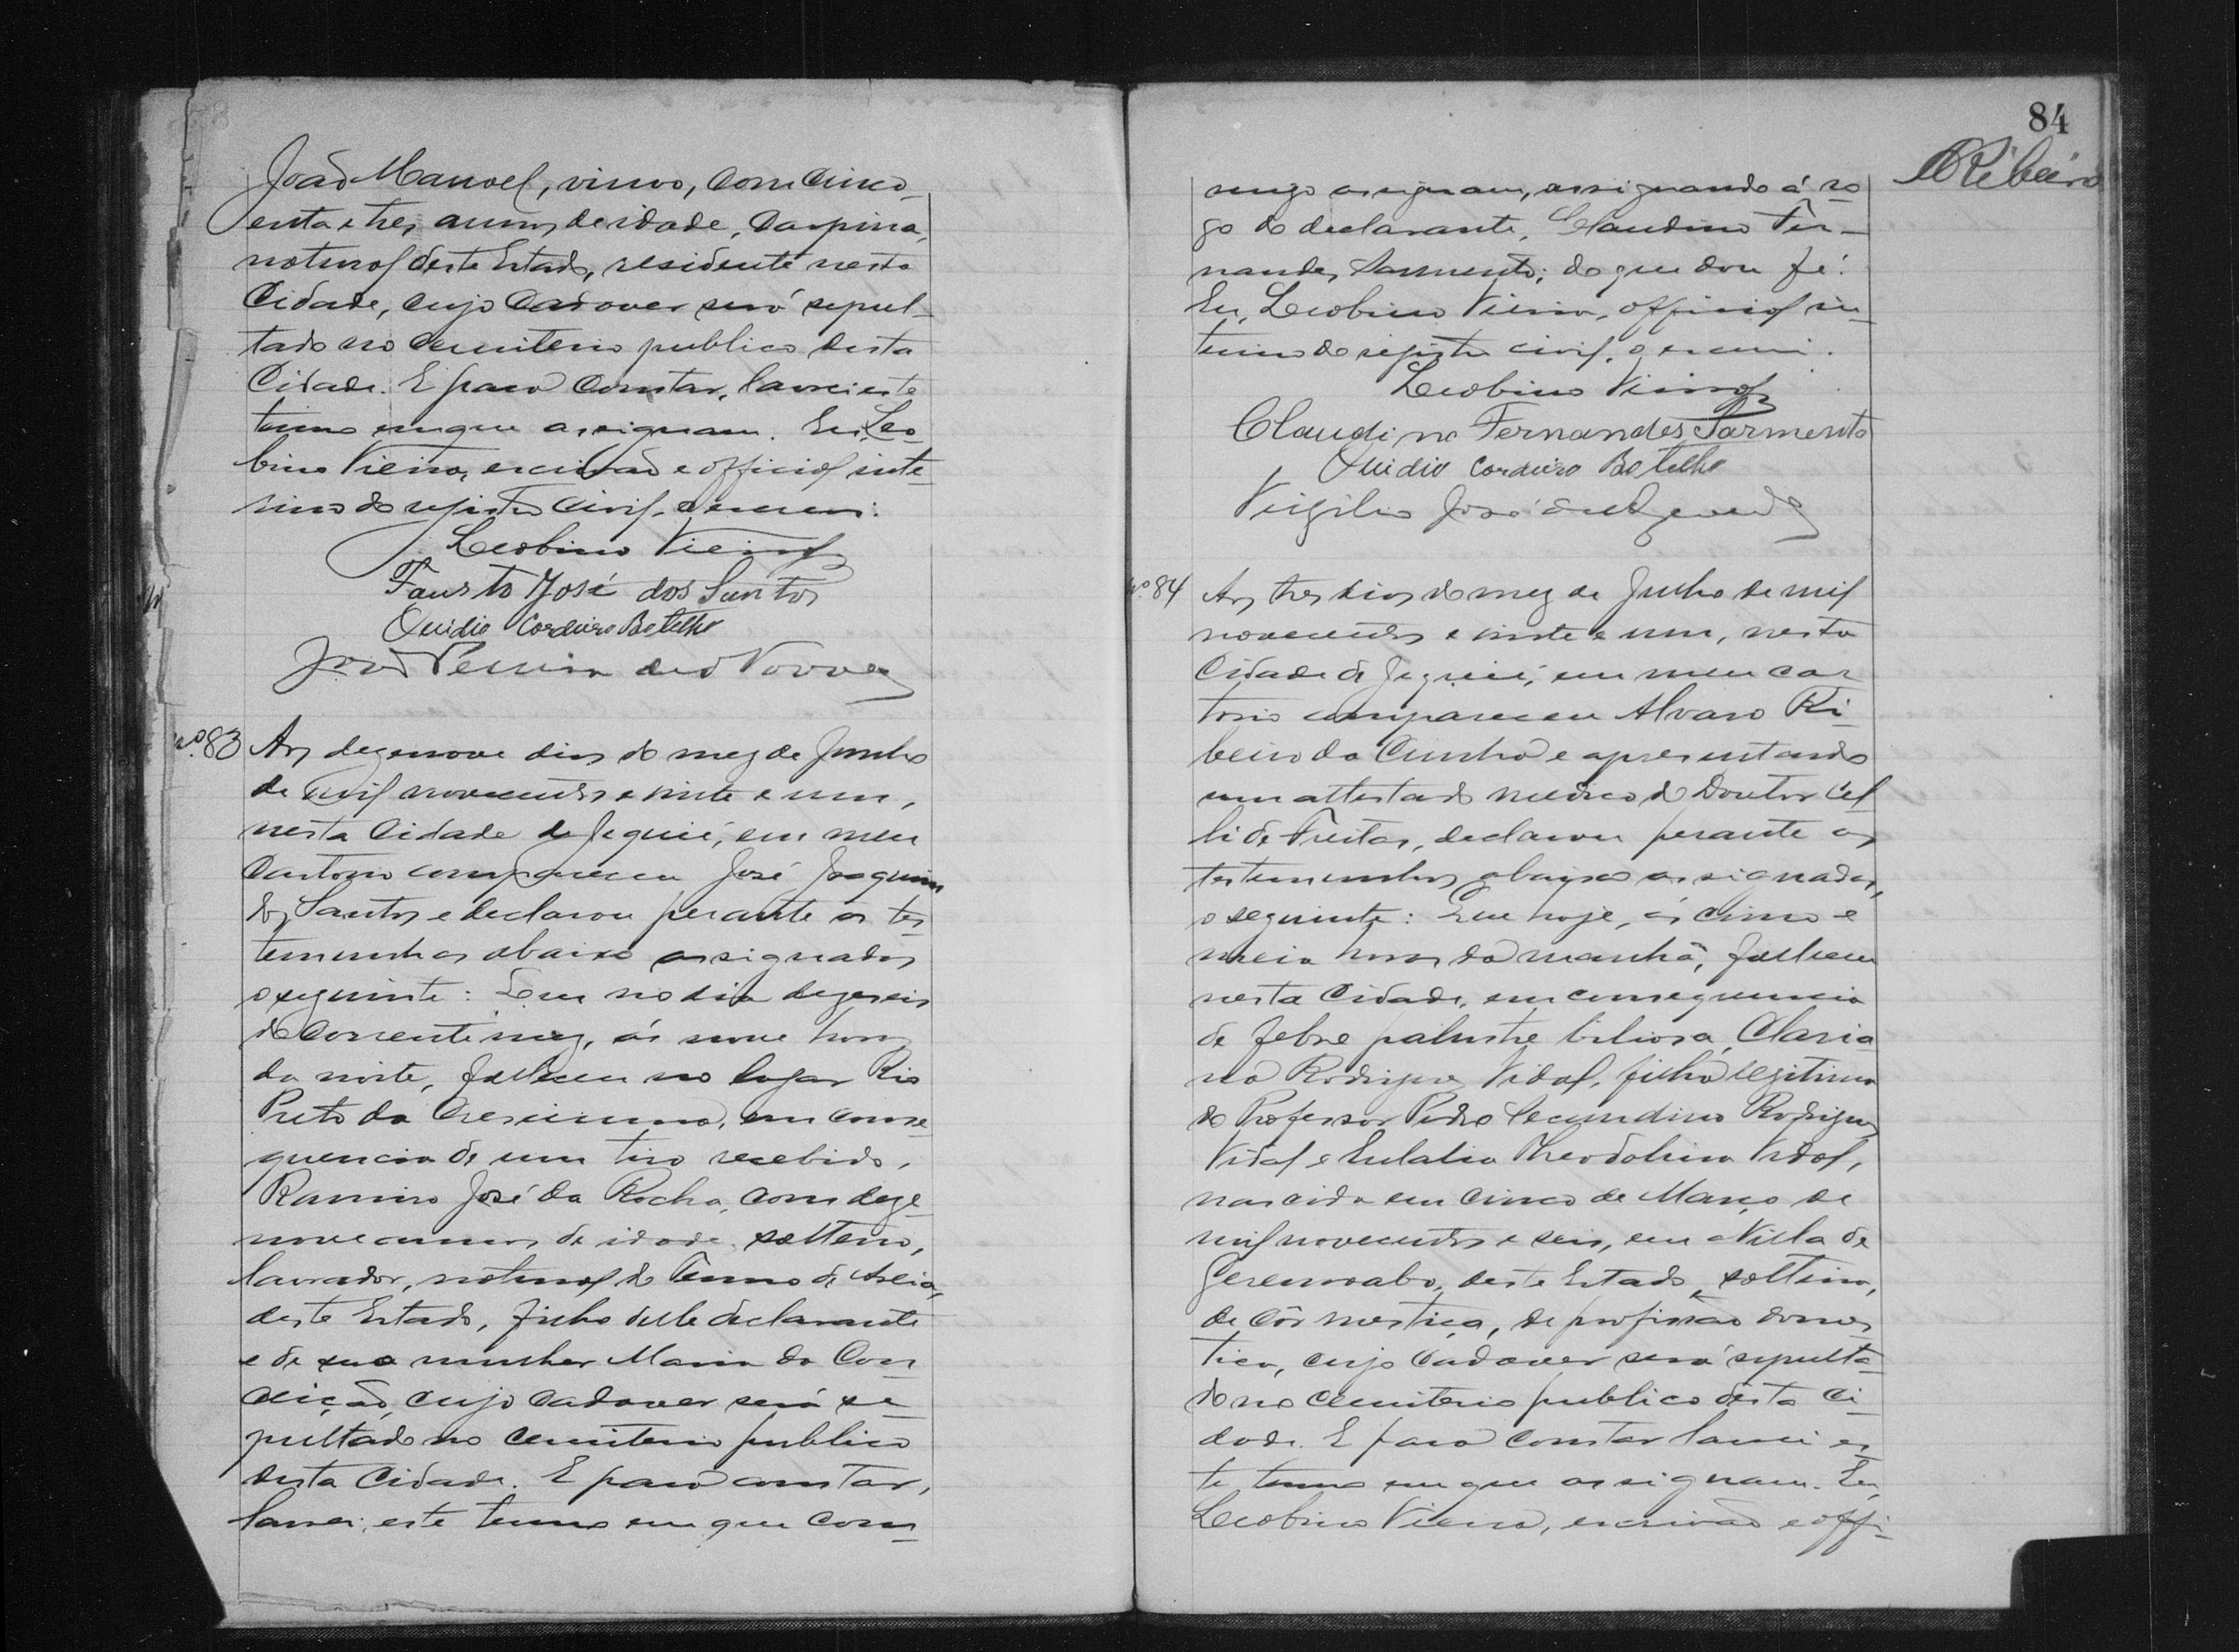 João Manoel, viuvo, com cinco
enta e tres annos de idade, carpina,
natural deste Estado, residente nesta
Cidade, cujo cadaver será sepul-
tado no Cemiterio publico desta
Cidade. E para constar, lavrei este
termo em que assignam. Eu, Leo
bino Vieira, escrivão e official inte
rino do registro civil, o escrevi.
Leobino Vieira
Fausto José dos Santos
Ouidio Cordeiro Botelho
José Pereira de Novaes
nº 83 Aos dezenove dias do mez de Junho
de mil novecentos e vinte e um,
nesta Cidade de Jequié, em meu
Cartorio compareceu José Joaquim
dos Santos e declarou perante as tes
temunhas abaixo assignadas
o seguinte: Que no dia dezeseis
do corrente mez, ás nove horas
da noite, falleceu no logar Rio
Preto da Cresciuma, em conse
quencia de um tiro recebido,
Ramiro José da Rocha, com deze
nove annos de idade, solteiro,
lavrador, natural do Termo de Areia,
deste Estado, filho delle declarante
e de sua mulher Maria da Con
ceição, cujo cadaver será se
pultado no cemiterio publico
desta Cidade. E para constar,
lavrei este termo em que com
84
Ribeiro
migo assignam, assignando á ro
go do declarante, Claudino Fer-
nandes Sarmento; do que dou fé.
Eu, Leobino Vieira, official in
terino do registro civil, o escrevi.
Leobino Vieira
Claudino Fernandes Sarmento
Ouidio Cordeiro Botelho
Virgilio José de
nº 84 Aos tres dias do mez de Julho de mil
novecentos e vinte e um, nesta
Cidade de Jequié, em meu car
torio compareceu Alvaro Ri
beiro da Cunha e apresentando
um attestado medico do Doutor Cel
li de Freitas, declarou perante as
testemunhas abaixo assignadas,
o seguinte: Que hoje, ás cinco e
meia horas da manhã, falleceu
nesta Cidade, em consequencia
de febre palustre biliosa, Claria
na Rodrigues Vidal, filha legitima
do Professor Pedro Secundino Rodrigues
Vidal e Eulalia Theodolina Vidal,
nascida em cinco de Março de
mil novecentos e seis, em a Villa de
Geremoabo, deste Estado, solteira,
de côr mestiça, de profissão domes
tica, cujo cadaver será sepulta
do no cemiterio publico desta Ci
dade. E para constar lavrei es
te termo em que assignam. Eu,
Leobino Vieira, escrivão e offi-